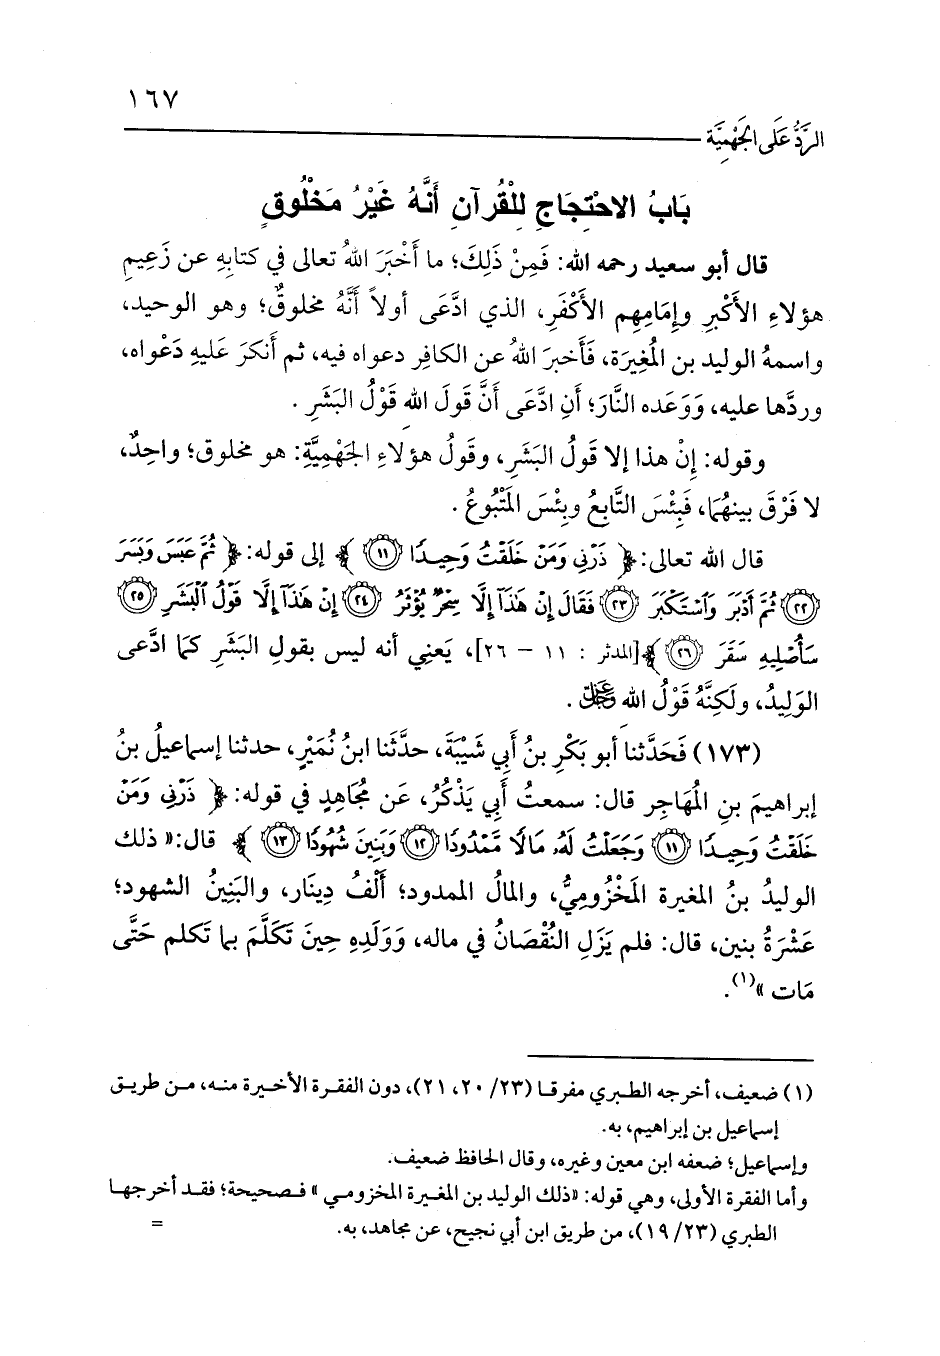 ١٦٧
الرَّدُّ عَلَى الجَهْمِيَّة
بَابُ الاحْتِجَاجِ لِلْقُرآنِ أَنَّهُ غَيْرُ مَخْلُوقٍ
قال أبو سعيد رحمه الله: فَمِنْ ذَلِكَ؛ ما أَخْبَرَ اللهُ تعالى في كتابِهِ عن زَعِيمِ
هؤلاءِ الأَكْبرِ وإِمَامِهِم الأَكْفَرِ، الذي ادَّعَى أولاً أَنَّهُ مخلوقٌ؛ وهو الوحيد،
واسمهُ الوليد بن المُغِيرَة، فَأَخبرَ اللهُ عن الكافِرِ دعواه فيه، ثم أَنكرَ عَليهِ دَعْواه،
وردَّها عليه، وَوَعَده النَّارَ؛ أَنِ ادَّعَى أَنَّ قَولَ اللهِ قَوْلُ البَشَرِ .
وقوله: إِنْ هذا إلا قَولُ البَشَرِ، وقَولُ هؤلاءِ الجَهْمِيَّةِ: هو مخلوق؛ واحِدٌ،
لا فَرْقَ بينهُمَا، فَبِئْسَ التَّابِعُ وبِئْسَ المَتْبُوعُ .
قال الله تعالى: ﴿ ذَرْنِي وَمَنْ خَلَقْتُ وَحِيدًا ۝١١ ﴾ إلى قوله: ﴿ ثُمَّ عَبَسَ وَبَسَرَ
۝٢٢ ثُمَّ أَدْبَرَ وَٱسْتَكْبَرَ ۝٢٣ فَقَالَ إِنْ هَٰذَآ إِلَّا سِحْرٌ يُؤْثَرُ ۝٢٤ إِنْ هَٰذَآ إِلَّا قَوْلُ ٱلْبَشَرِ ۝٢٥
سَأُصْلِيهِ سَقَرَ ۝٢٦ ﴾[المدثر : ١١ – ٢٦]، يَعنِي أنه ليس بقولِ البَشَرِ كمَا ادَّعى
الوَلِيدُ، ولَكِنَّهُ قَوْلُ اللهِ عَزَّ وَجَلَّ .
(١٧٣) فَحَدَّثنا أبو بَكْرِ بنُ أَبِي شَيْبَةَ، حدَّثَنا ابنُ نُمَيْرٍ، حدثنا إسماعيلُ بنُ
إبراهيمَ بنِ المُهَاجِرِ قال: سمعتُ أَبِي يَذْكُرُ، عَن مُجَاهِدٍ في قوله: ﴿ ذَرْنِي وَمَنْ
خَلَقْتُ وَحِيدًا ۝١١ وَجَعَلْتُ لَهُۥ مَالًا مَّمْدُودًا ۝١٢ وَبَنِينَ شُهُودًا ۝١٣ ﴾ قال:« ذلك
الوليدُ بنُ المغيرة المَخْزُومِيُّ، والمالُ الممدود؛ أَلْفُ دِينَار، والبَنِينُ الشهود؛
عَشْرَةُ بنين، قال: فلم يَزَلِ النُّقْصَانُ في ماله، وَوَلَدِهِ حِينَ تَكَلَّمَ بما تَكلم حَتَّى
مَات »(١).
(١) ضعيف، أخرجه الطبري مفرقا (٢٣/ ٢٠، ٢١)، دون الفقرة الأخيرة منه، من طريق
إسماعيل بن إبراهيم، به.
وإسماعيل؛ ضعفه ابن معين وغيره، وقال الحافظ ضعيف.
وأما الفقرة الأولى، وهي قوله: «ذلك الوليد بن المغيرة المخزومي » فصحيحة؛ فقد أخرجها
الطبري (٢٣/ ١٩)، من طريق ابن أبي نجيح، عن مجاهد، به. =